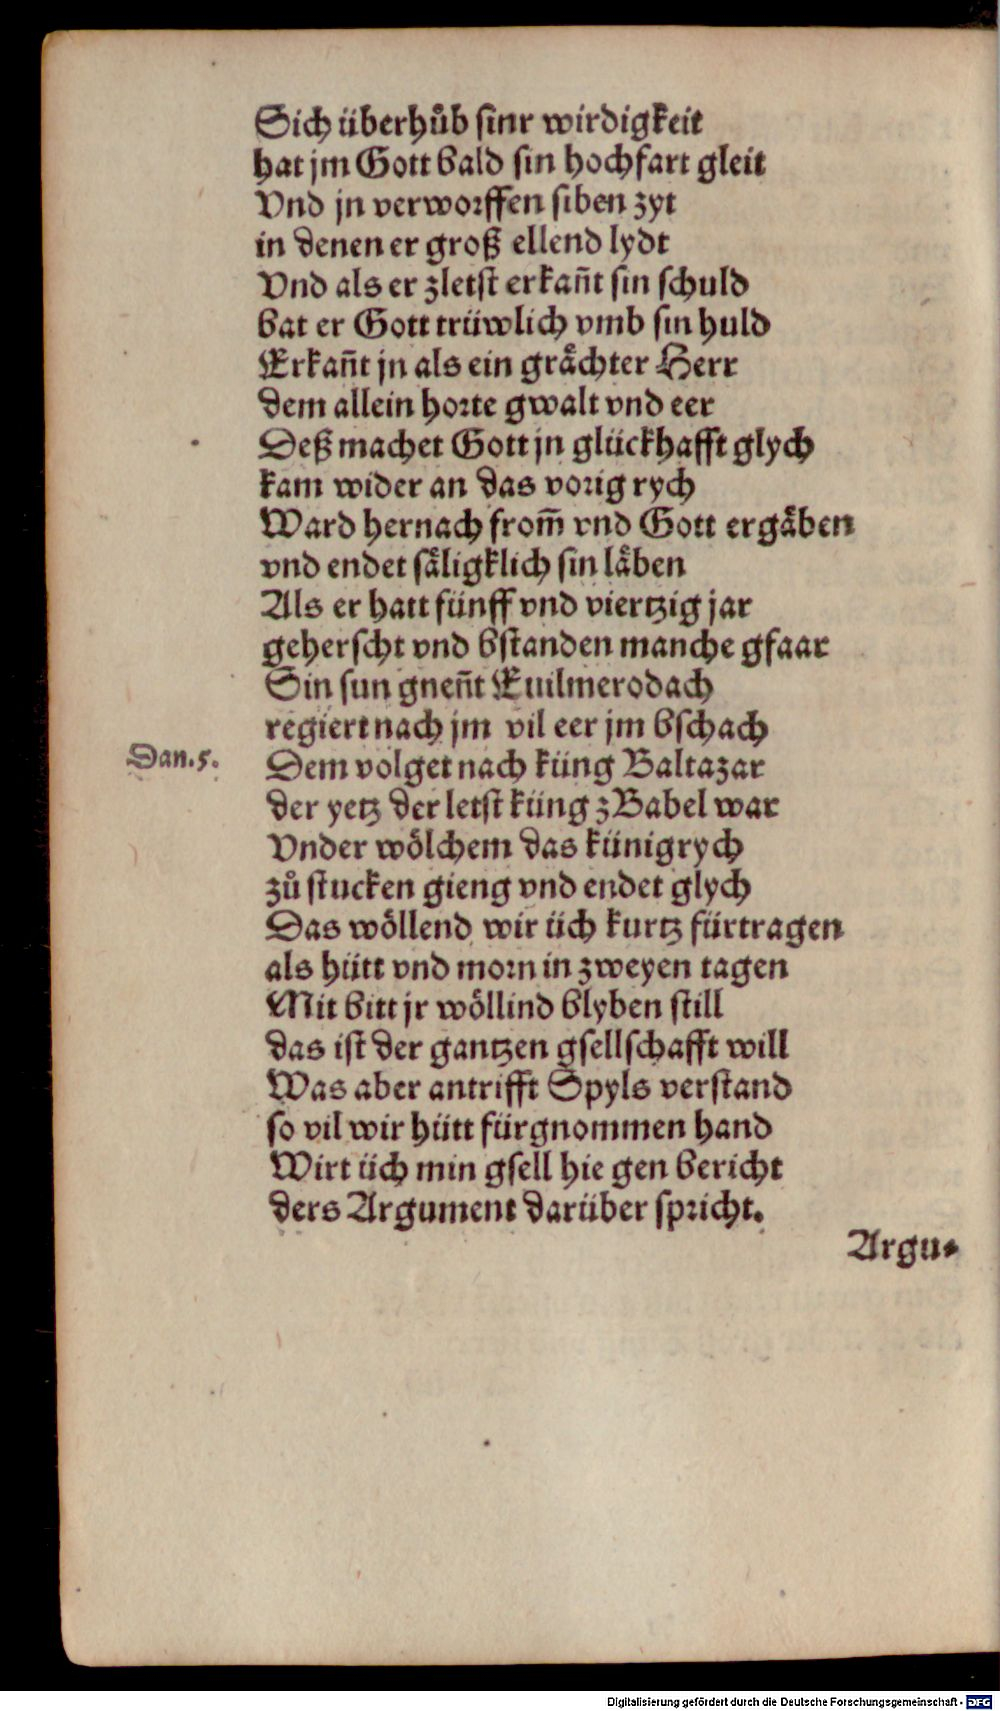 Sich überhůb sinr wirdigkeit
hat jm Gott bald sin hochfart gleit
Vnd jn verworffen siben zyt
in denen er groß ellend lydt
Vnd als er zletst erkañt sin schuld
bat er Gott trüwlich vmb sin huld
Erkañt jn als ein grächter Herr
dem allein horte gwalt vnd eer
Deß machet Gott jn glückhafft glych
kam wider an das vorig rych
Ward hernach from̃ vnd Gott ergäben
vnd endet säligklich sin läben
Als er hatt fünff vnd viertzig jar
geherscht vnd bstanden manche gfaar
Sin sun gneñt Euilmerodach
regiert nach jm vil eer jm bschach
Dan.5. Dem volget nach küng Baltazar
der yetz der letst küng zBabel war
Vnder wölchem das künigrych
zů stucken gieng vnd endet glych
Das wöllend wir üch kurtz fürtragen
als hütt vnd morn in zweyen tagen
Mit bitt jr wöllind blyben still
das ist der gantzen gsellschafft will
Was aber antrifft Spyls verstand
so vil wir hütt fürgnommen hand
Wirt üch min gsell hie gen bericht
ders Argument darüber spricht.
Argu⸗
Digitalisierung gefördert durch die Deutsche Forschungsgemeinschaft - DFG